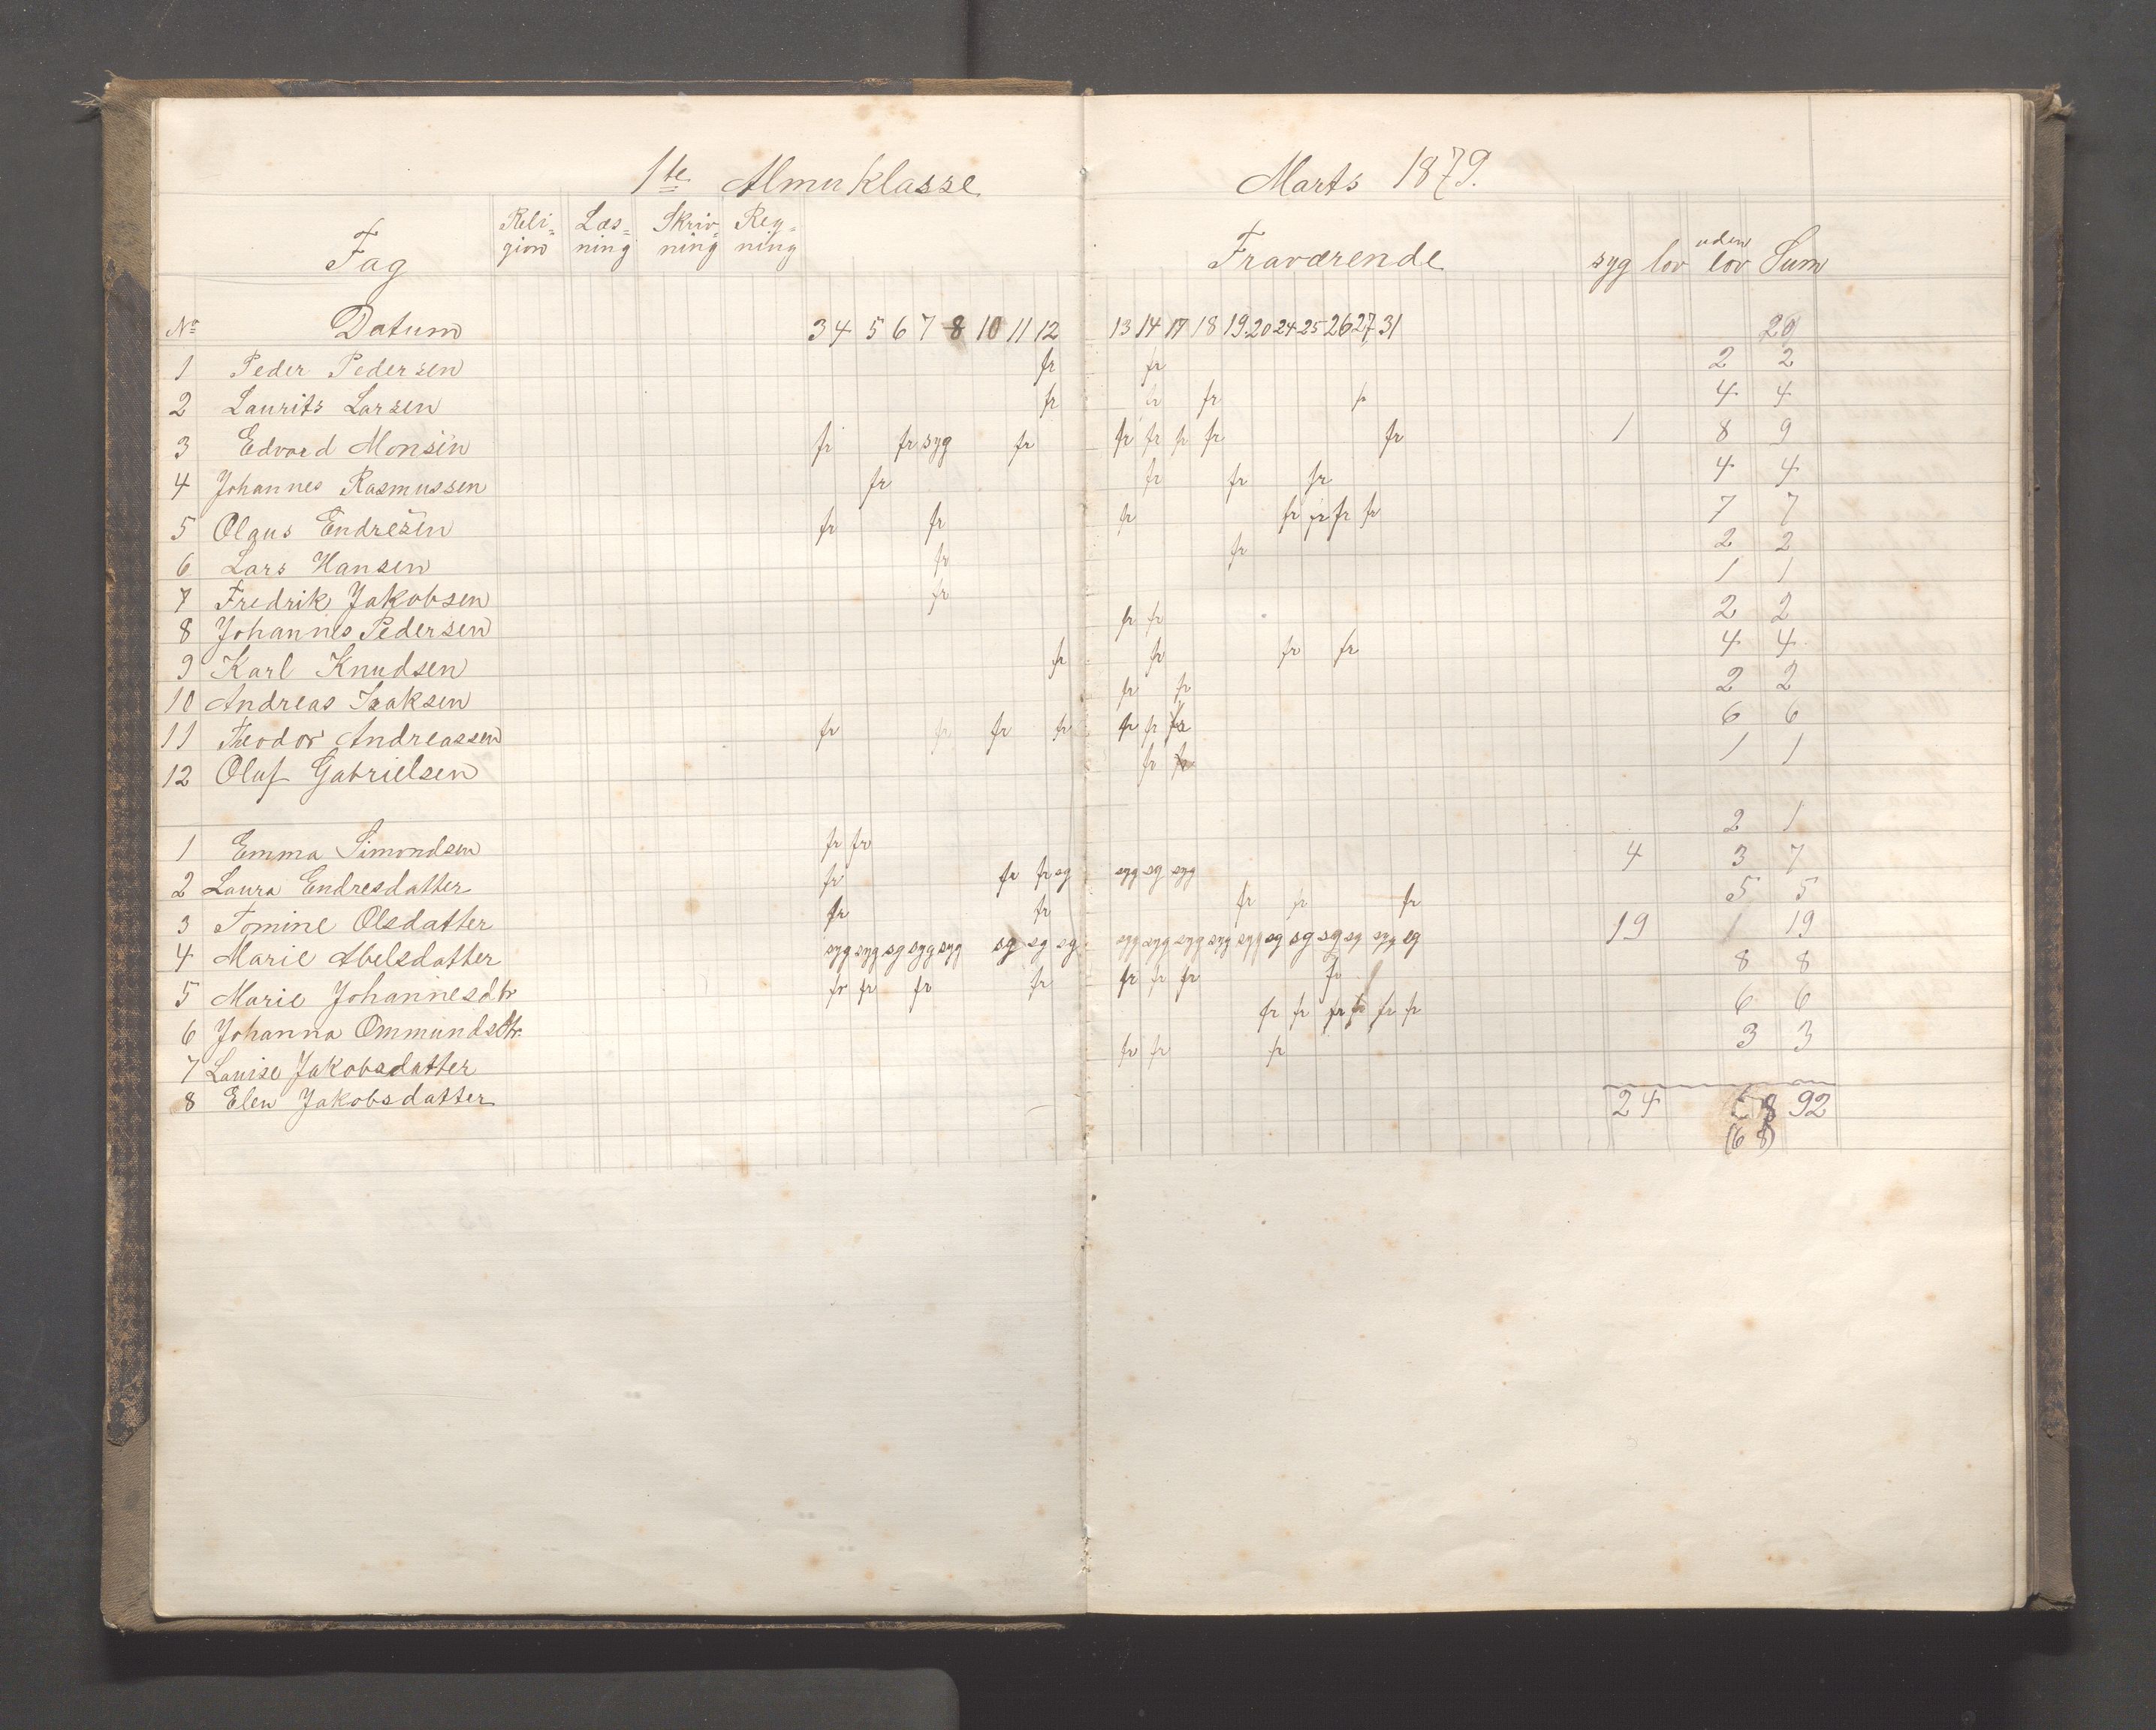 1te Almu klasse Marts 1879.
Fag Reli=gion Læs=ning Skriv=ning Reg=ning Fraværende syg lov uden lov Sum
No Datum 3 4 5 6 7 8 10 11 12 13 14 17 18 19 20 24 25 26 27 31 20
1 Peder Pedersen fr fr 2 2
2 Laurits Larsen fr fr fr fr 4 4
3 Edvard Monsen fr fr syg fr fr fr fr fr fr 1 8 9
4 Johannes Rasmussen fr fr fr fr 4 4
5 Olaus Endresen fr fr fr fr fr fr fr 7 7
6 Lars Hansen fr fr 2 2
7 Fredrik Jakobsen fr 1 1
8 Johannes Pedersen fr fr 2 2
9 Karl Knudsen fr fr fr fr 4 4
10 Andreas Isaksen fr fr 2 2
11 Theodor Andreassen fr fr fr fr fr fr fr 6 6
12 Oluf Gabrielsen fr fr 1 1
1 Emma Simondsen fr fr 2 1
2 Laura Endresdatter fr fr fr sg syg sg syg 4 3 7
3 Tomine Olsdatter fr fr fr fr fr 5 5
4 Marie Abelsdatter syg syg sg syg syg sg sg sg syg syg syg syg syg sg sg sg sg syg sg 19 19
5 Marie Johannesdtr fr fr fr fr fr fr fr fr 8 8
6 Johanna Ommundsdtr. fr fr fr fr fr fr 6 6
7 Lauise Jakobsdatter fr fr fr 3 3
8 Elen Jakobsdatter
24 58 92
(68)